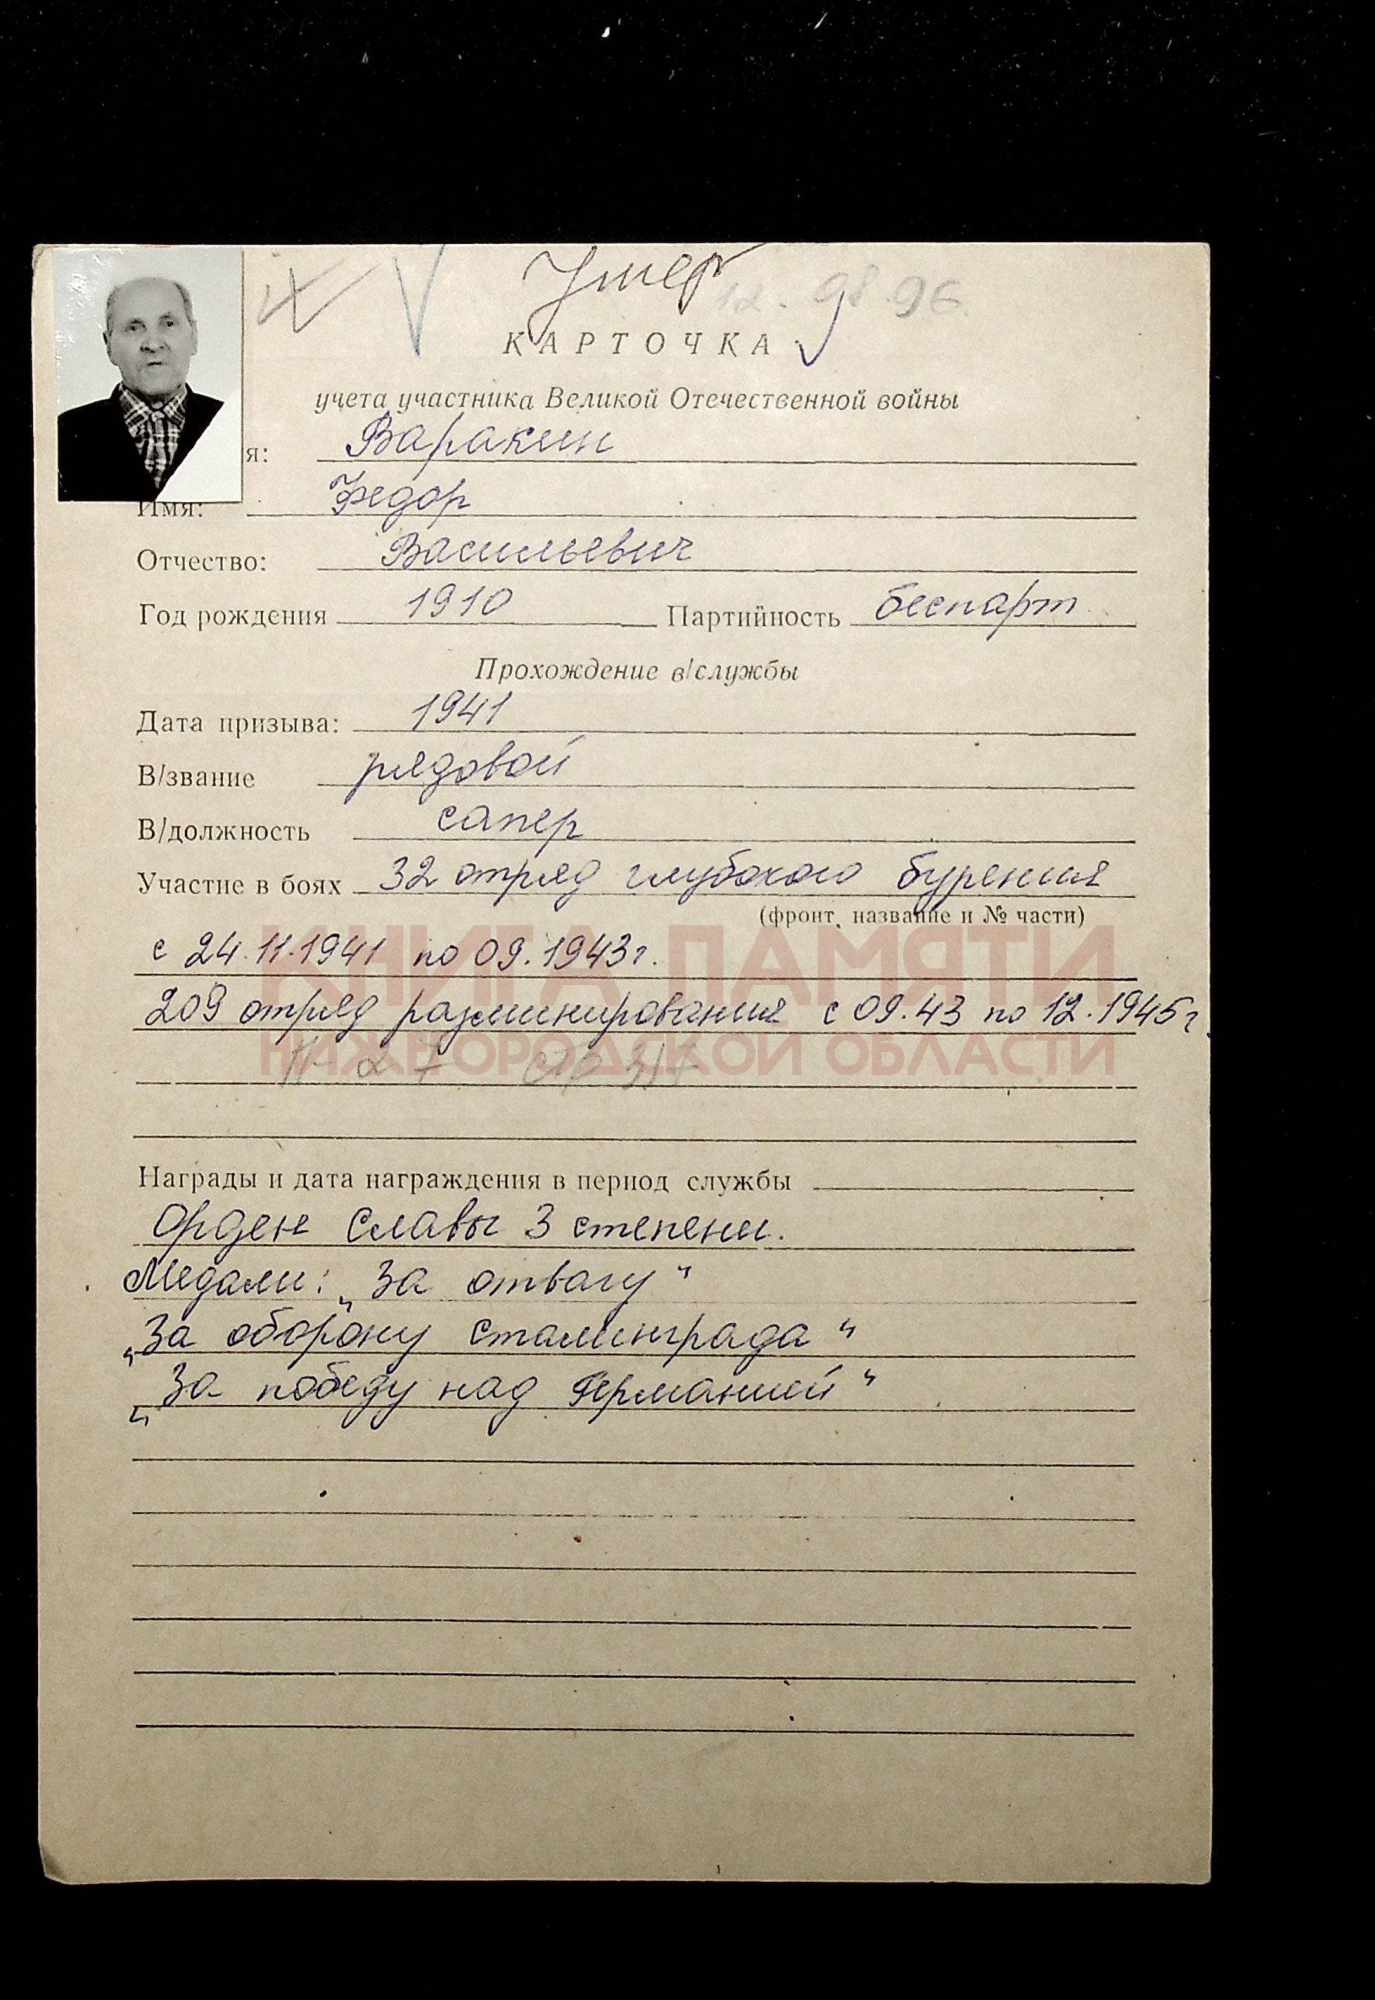 Умер 12.08.96
КАРТОЧКА
учета участника Великой Отечественной войны
я: Варакин
Имя: Федор
Отчество: Васильевич
Год рождения 1910 Партийность беспарт
Прохождение в/службы
Дата призыва: 1941
В/звание рядовой
В/должность сапер
Участие в боях 32 отряд глубокого бурения
(фронт, название и № части)
с 24.11.1941 по 09.1943г.
КНИГА ПАМЯТИ
209 отряд разминирования с 09.43 по 12.1945г
НИЖЕГОРОДСКОЙ ОБЛАСТИ
стр 317
Награды и дата награждения в период службы
Орден Славы 3 степени.
Медали: „За отвагу"
„За оборону Сталинграда"
„За победу над Германией"